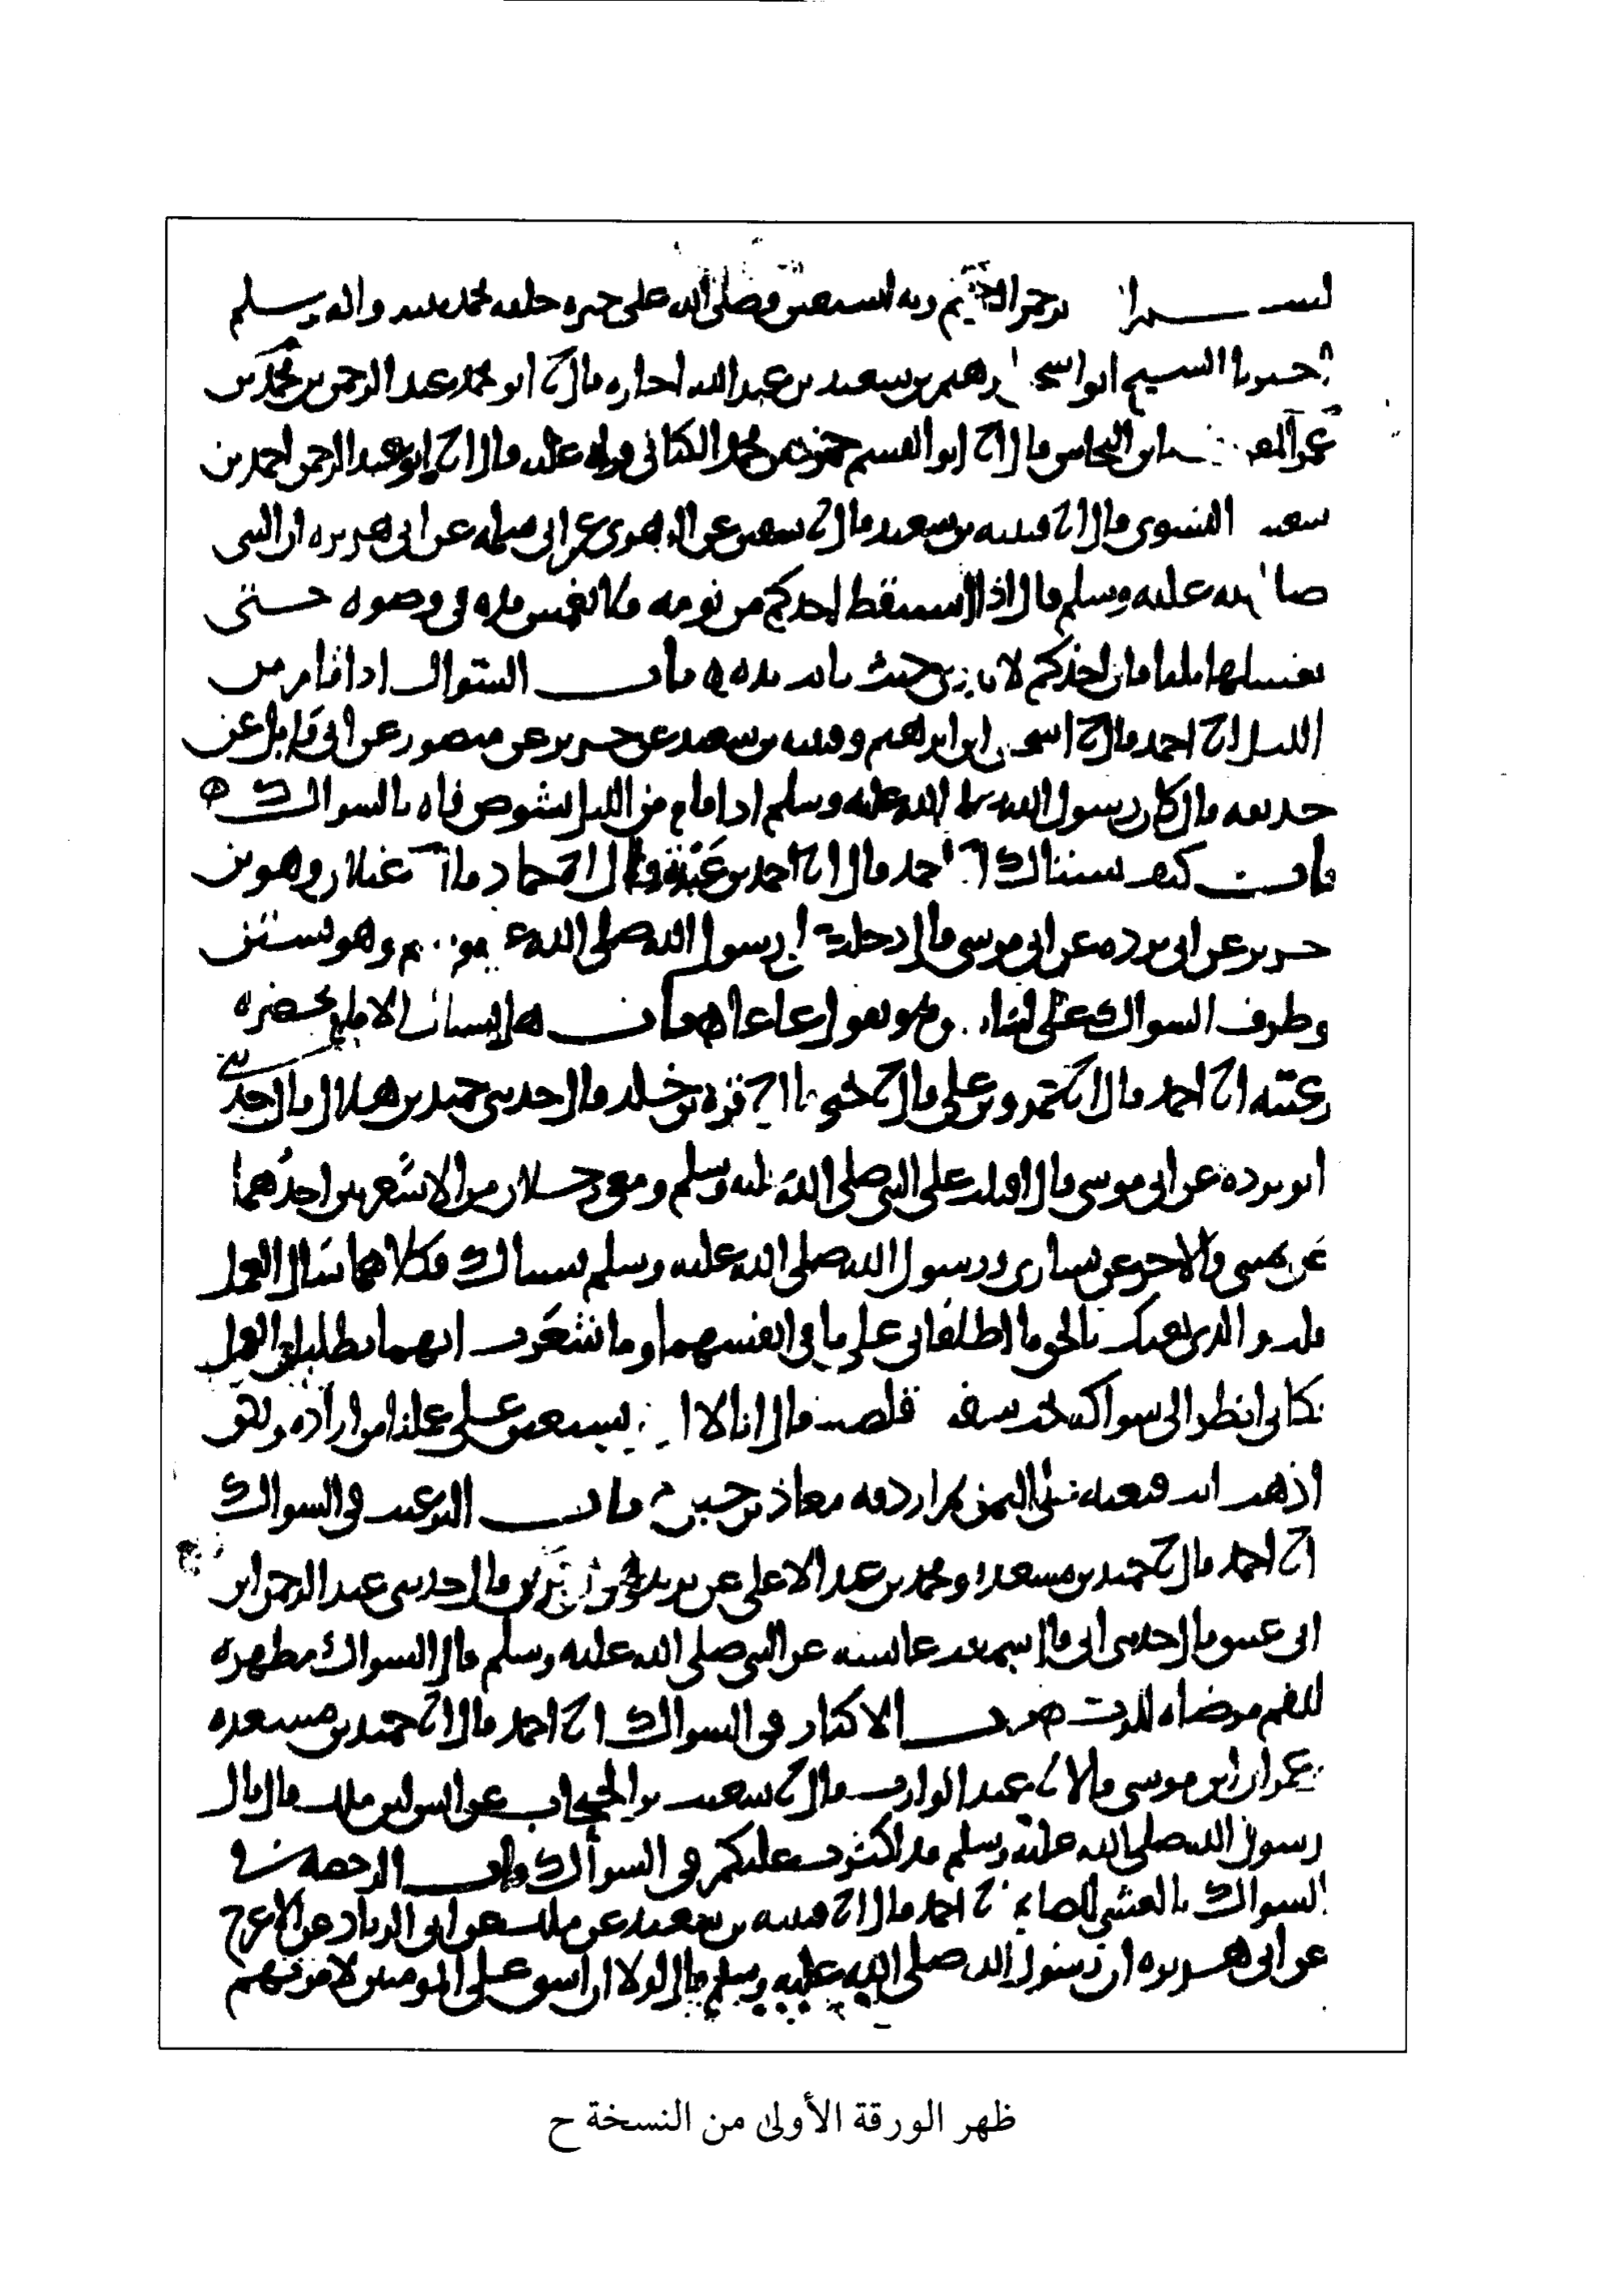 بسم الله الرحمن الرحيم وبه استعين وصلى الله على خيره خلقه محمد نبيه واله وسلم
اخبرنا الشيخ ابو اسحق ابرهيم بن سعيد بن عبد الله اجازه قال انا ابو محمد عبد الرحمن بن محمد بن
عمر ابن النحاس قال انا ابو القسم حمزه بن محمد الكناني قراه عليه قال انا ابو عبد الرحمن احمد بن
شعيب النسوي قال انا قتيبه بن سعيد قال نا سفين عن الزهري عن ابي سلمه عن ابي هريره ان النبي
صلى الله عليه وسلم قال اذا استيقظ احدكم من نومه فلا يغمس يده في وضوه حتى
يغسلها ثلثا فان احدكم لا يدري حيث باتت يده باب السواك اذا قام من
الليل انا احمد قال انا اسحق بن ابرهيم وقتيبه بن سعيد عن جرير عن منصور عن ابي وايل عن
حذيفه قال كان رسول الله صلى الله عليه وسلم اذا قام من الليل يشوص فاه بالسواك
باب كيف يستاك انا احمد قال انا احمد بن عبدة قال نا حماد قال نا غيلان وهو بن
جرير عن ابي برده عن ابي موسى قال دخلت على رسول الله صلى الله عليه وسلم وهو يستن
وطرف السواك على لسانه وهو يقول عا عا باب هل يستاك الامام بحضره
رعيته انا احمد قال انا عمرو بن علي قال نا يحيى قال نا قره بن خالد قال حدثني حميد بن هلال قال حدثني
ابو برده عن ابي موسى قال اقبلت على النبي صلى الله عليه وسلم ومعي رجلان من الاشعريين احدهما
عن يميني والاخر عن يساري ورسول الله صلى الله عليه وسلم يستاك فكلاهما سال العمل
قلت والذي بعثك بالحق ما اطلعاني على ما في انفسهما وما شعرت انهما يطلبان العمل
فكاني انظر الى سواكه تحت شفته قلصت فقال انا لا نستعين على عملنا من اراده ولكن
اذهب انت فبعثه على اليمن ثم اردفه معاذ بن جبل باب الترغيب في السواك
انا احمد قال نا حميد بن مسعده ومحمد بن عبد الاعلى عن يزيد وهو بن زريع قال حدثني عبد الرحمن ابن
ابي عتيق قال حدثني ابي قال سمعت عائشه عن النبي صلى الله عليه وسلم قال السواك مطهره
للفم مرضاه للرب باب الاكثار في السواك انا احمد قال انا حميد بن مسعده
وعمران ابن موسى قالا نا عبد الوارث قال نا شعيب بن الحبحاب عن انس بن ملك قال قال
رسول الله صلى الله عليه وسلم قد اكثرت عليكم في السواك باب الرخصه في
السواك بالعشي للصايم انا احمد قال انا قتيبه بن سعيد عن ملك عن ابي الزناد عن الاعرج
عن ابي هريره ان رسول الله صلى الله عليه وسلم قال لولا ان اشق على المومنين لامرتهم
ظهر الورقة الأولى من النسخة ح